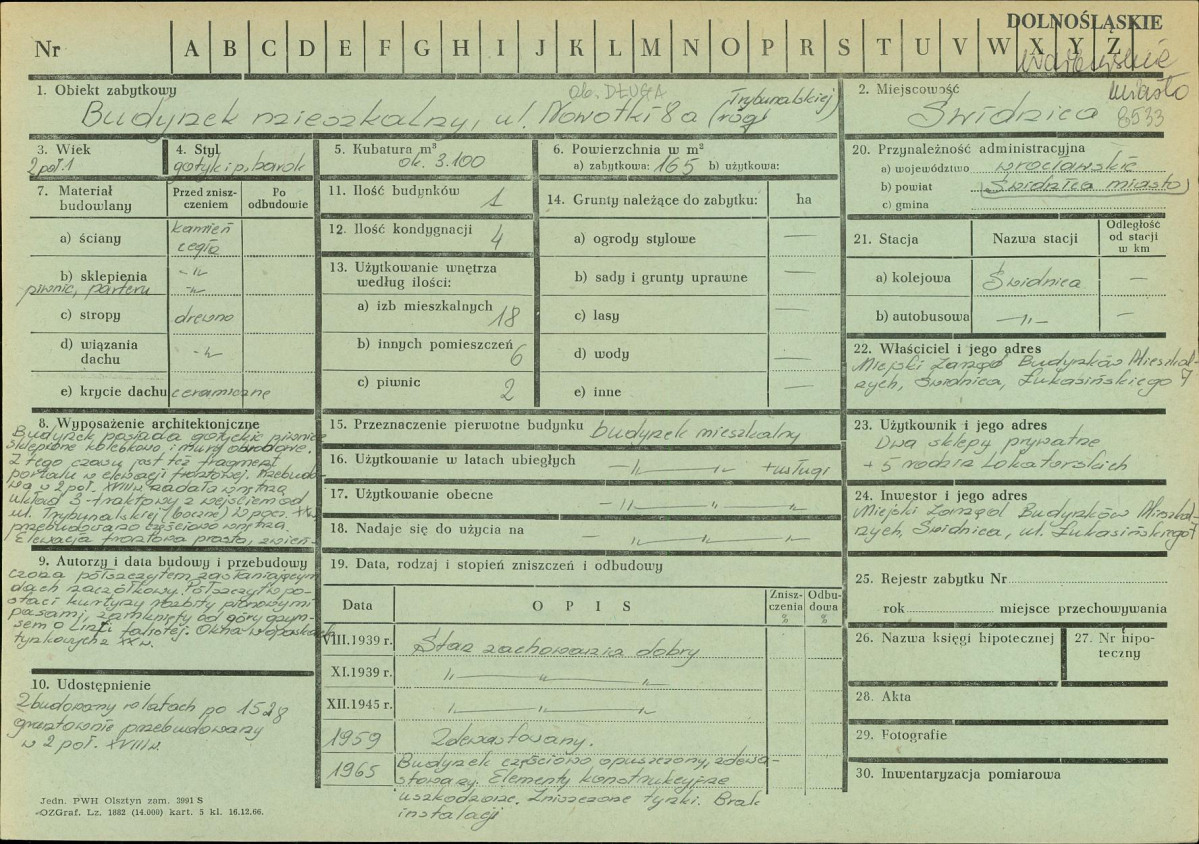 DOLNOŚLĄSKIE
Nr A B C D E F G H I J K L M N O P R S T U V W X Y Z
Wałbrzyskie
1. Obiekt zabytkowy
ob. DŁUGA
Budynek mieszkalny, ul. Nowotki 8a (róg Trybunalskiej)
2. Miejscowość
miasto
Świdnica 8533
3. Wiek
2 poł.
4. Styl
gotyk i p. barok
5. Kubatura m³
ok. 3.100
6. Powierzchnia w m²
a) zabytkowa: 165 b) użytkowa:
20. Przynależność administracyjna
a) województwo wrocławskie
b) powiat (Świdnica miasto)
c) gmina
7. Materiał budowlany
Przed zniszczeniem
Po odbudowie
a) ściany kamień
cegła
b) sklepienia -"-
piwnic, parteru -"-
c) stropy drewno
d) wiązania dachu -"-
e) krycie dachu ceramiczne
11. Ilość budynków 1
12. Ilość kondygnacji 4
13. Użytkowanie wnętrza
według ilości:
a) izb mieszkalnych 18
b) innych pomieszczeń 6
c) piwnic 2
14. Grunty należące do zabytku: ha
a) ogrody stylowe —
b) sady i grunty uprawne —
c) lasy —
d) wody —
e) inne —
21. Stacja Nazwa stacji Odległość od stacji w km
a) kolejowa Świdnica —
b) autobusowa -"- —
22. Właściciel i jego adres
Miejski Zarząd Budynków Mieszkal-
nych, Świdnica, Łukasińskiego 7
8. Wyposażenie architektoniczne
Budynek posiada gotyckie piwnice
sklepione kolebkowo i mury obwodowe.
Z tego czasu jest też fragment
portalu w elewacji frontowej. Przebudo-
wa w 2 poł. XVIII w. nadała wnętrzu
układ 3-traktowy z wejściem od
ul. Trybunalskiej (boczne) W pocz. XX w.
przebudowano częściowo wnętrza.
Elewacja frontowa prosta, zwień-
9. Autorzy i data budowy i przebudowy
czona półszczytem zasłaniającym
dach naczółkowy. Półszczyt w po-
staci kurtyny rozbity pionowymi
pasami, zamknięty od góry gzym-
sem o linii falistej. Okna w opaskach
tynkowych z XX w.
10. Udostępnienie
Zbudowany w latach po 1528
gruntownie przebudowany
w 2 poł. XVIII w.
15. Przeznaczenie pierwotne budynku budynek mieszkalny
16. Użytkowanie w latach ubiegłych -"- -"- + usługi
17. Użytkowanie obecne -"- -"-
18. Nadaje się do użycia na -"-
19. Data, rodzaj i stopień zniszczeń i odbudowy
Data OPIS Zniszczenia % Odbudowa %
VIII.1939 r. Stan zachowania dobry
XI.1939 r. -"- -"- -"-
XII.1945 r. -"- -"- -"-
1959 Zdewastowany.
1965 Budynek częściowo opuszczony, zdewa-
stowany. Elementy konstrukcyjne
uszkodzone. Zniszczone tynki. Brak
instalacji
23. Użytkownik i jego adres
Dwa sklepy prywatne
+ 5 rodzin lokatorskich
24. Inwestor i jego adres
Miejski Zarząd Budynków Mieszkal-
nych, Świdnica, ul. Łukasińskiego 7
25. Rejestr zabytku Nr
rok miejsce przechowywania
26. Nazwa księgi hipotecznej
27. Nr hipoteczny
28. Akta
29. Fotografie
30. Inwentaryzacja pomiarowa
Jedn. PWH Olsztyn zam. 3991 S
-OZGraf. Lz. 1882 (14.000) kart. 5 kl. 16.12.66.